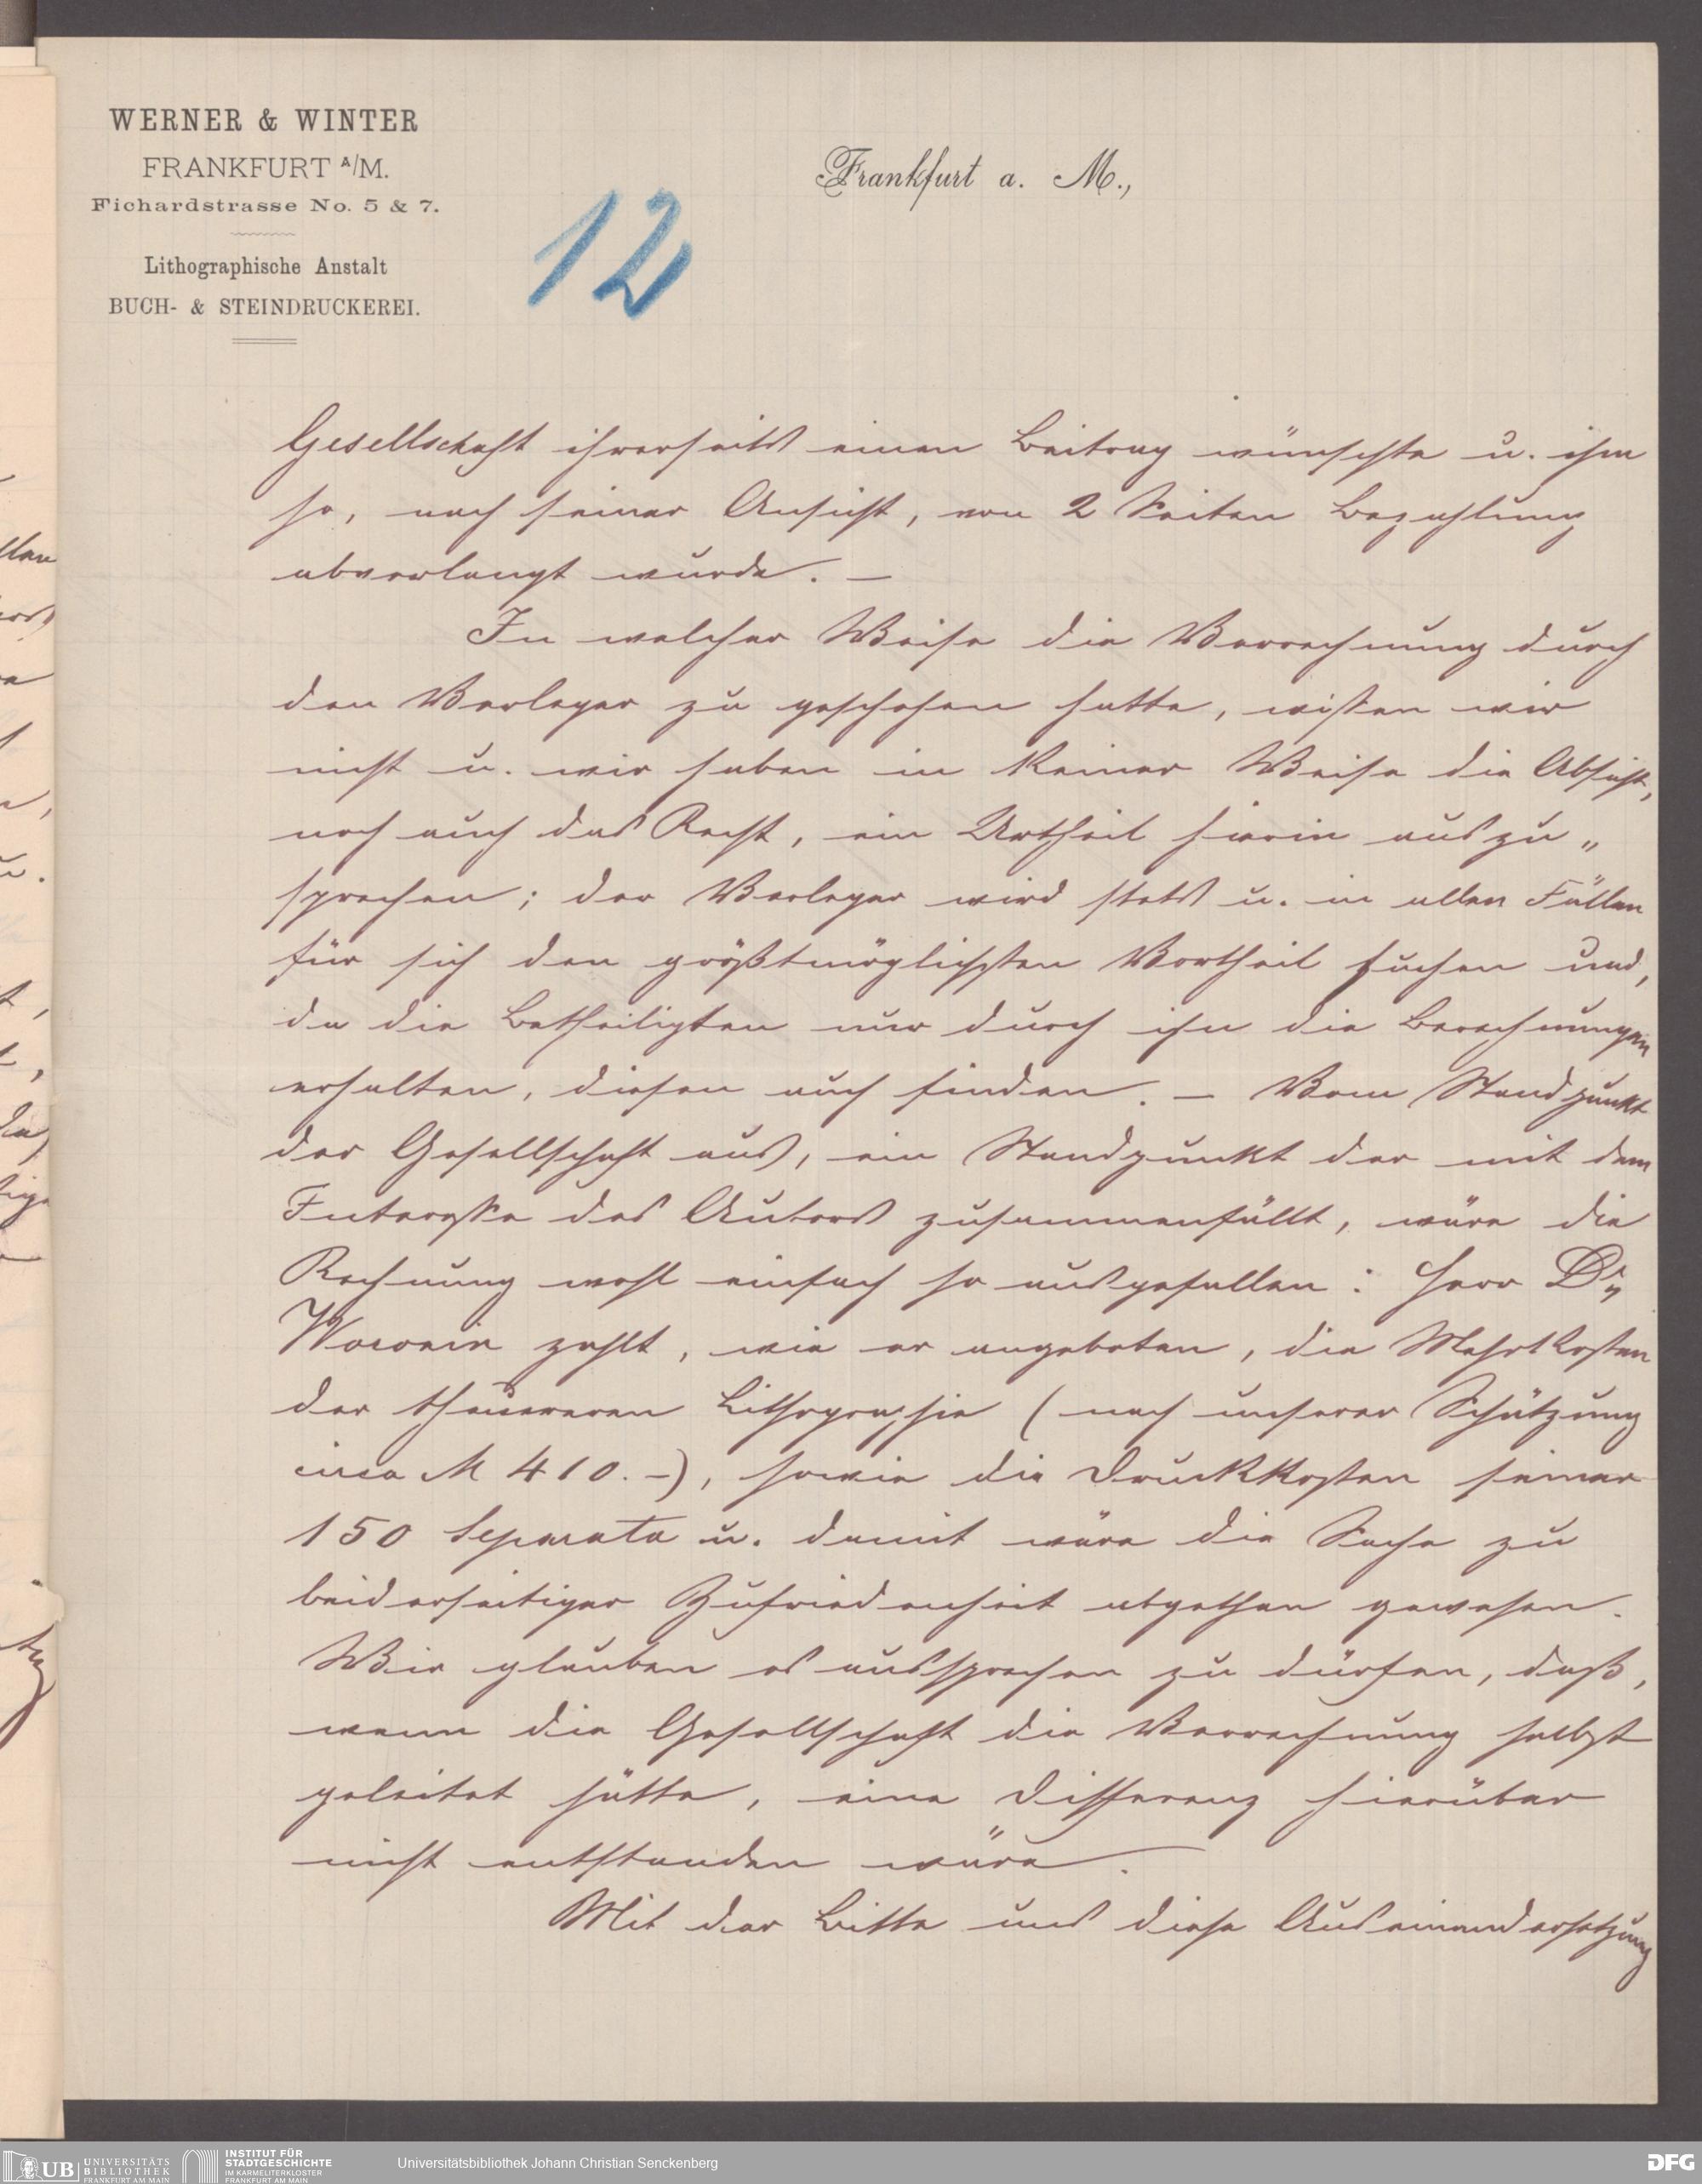 WERNER & WINTER
FRANKFURT A/M.
Fichardstrasse No. 5 & 7.
Lithographische Anstalt
BUCH- & STEINDRUCKEREI.
Frankfurt a. M.,
12
Gesellschaft ihrerseits einen Beitrag wünschte u. ihm
so, nach seiner Ansicht, von 2 Seiten Bezahlung
abverlangt wurde. —
In welcher Weise die Verrechnung durch
den Verleger zu geschehen hatte, wissen wir
nicht u. wir haben in keiner Weise die Absicht,
noch auch das Recht, ein Urtheil hierin auszu„
sprechen; der Verleger wird stets u. in allen Fällen
für sich den größtmöglichsten Vortheil suchen und,
da die Betheiligten nur durch ihn die Berechnungen
erhalten, diesen auch finden. — Vom Standpunkt
der Gesellschaft aus, ein Standpunkt der mit dem
Interesse des Autors zusammenfällt, wäre die
Rechnung wohl einfach so ausgefallen: Herr Dr.
Woronin zahlt, wie er angeboten, die Mehrkosten
der theuereren Lithographie (nach unserer Schätzung
circa M 410.–), sowie die Druckkosten seiner
150 Separata u. damit wäre die Sache zu
beiderseitiger Zufriedenheit abgethan gewesen.
Wir glauben es aussprechen zu dürfen, daß,
wenn die Gesellschaft die Verrechnung selbst
geleitet hätte, eine Differenz hierüber
nicht entstanden wäre.
Mit der Bitte uns diese Auseinandersetzung
UB UNIVERSITÄTS
BIBLIOTHEK
FRANKFURT AM MAIN
INSTITUT FÜR
STADTGESCHICHTE
IM KARMELITERKLOSTER
FRANKFURT AM MAIN
Universitätsbibliothek Johann Christian Senckenberg
DFG